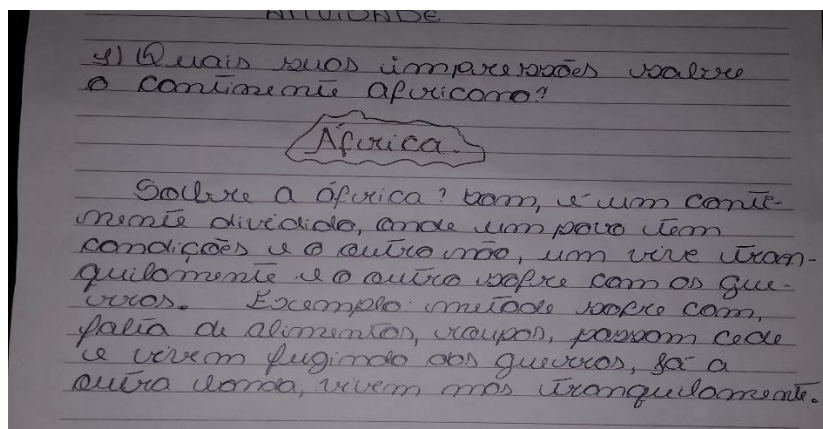 ATIVIDADE
1) Quais suas impressões sobre
o continente africano?
África.
Sobre a áfrica? bom, é um conti-
nente dividido, onde um povo tem
condições e o outro não, um vive tran-
quilamente e o outro sofre com as gue-
rras. Excemplo: metade sofre com,
falta de alimentos, roupas, passam cede
e vivem fugindo das guerras, já a
outra banda, vivem mas tranquilamente.